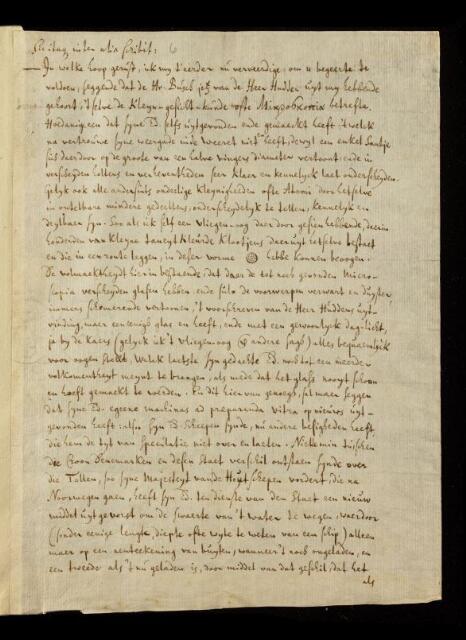 In welke hoop gerust, ik my t'eerder nu verveerdige, om u begeerte te
voldoen, seggende dat de Hr. Busch jets van de Heer Hudden uyt my hebbende
gehoort, 't selve de Kleyn-gesicht-kunde ofte betreft.
Hoedanig een dat syne Ed. selfs uytgevonden ende gemaeckt heeft, 't welck
na vertrouwe syne weergade inde Weerelt niet heeft, dewyl een enkel Santje
sus daer door op de groote van een halve vingers diameter vertoont: ende in
verscheyden hollens en verheventheden seer klaer en kennelyck laet onderscheyden.
Gelyk ook alle andersints ondeelige Kleynigheden ofte Atomi door hetselve
in ontelbare mindere gedeeltens, onderscheydelyk te tellen, kennelyk en
deylbaer syn. Soo als ik self een Vliegen-oog daer door gesien hebbende, daer in
honderden van kleyne Klootjens daer uyt hetselve bestaet
en die in een ronte leggen, in deser vorme hebbe konnen beoogen.
De volmaecktheydt hier in bestaende, dat daer de tot noch geweeste Micro-
scopia verscheyden glasen hebben ende sulx de voorwerpen verwart en duyster
immers schemerende vertoonen, 't voorschreven van de Heer Huddens uyt-
vinding, maer een enigh glas en heeft, ende met een gewoonlyck dag-licht,
ja by de kaers (gelyck ik 't vliegen-oog en andere sags) alles bequaemlyck
voor oogen stelt. Welck laetste syn gedachte Ed. noch tot een meerder
volkomentheyt meynt te brengen, als mede dat het glass nooyt schoon
en hoeft gemaeckt te worden. En dit hier van genoegh, sal maer seggen
dat syne Ed. egeene machinas ad præparanda vitra op nieuws uyt-
gevonden heeft: alsoo syn Ed. Scheepen synde, nu andere besigheden heeft,
die hem de tyt van speculatie niet over en laeten. Nietemin tusschen
de Croon Denemarken en desen Staet verschil ontstaen synde over
de Tollen, soo syne Majesteyt van de Hout-scheepen vordert, die na
Noorwegen gaen, heeft syn Ed. ten dienste van den Staet een nieuw
middel uyt gevonst om de swaerte van 't water te wegen, waer door
(sonder eenige lengte, diepte ofte wyte te weten van een schip) alleen
maer op een aenteekening van buyten, wanneer 't noch ongeladen, en
een tweede als 't nu geladen is, door middel van dat geschil, dat het
als